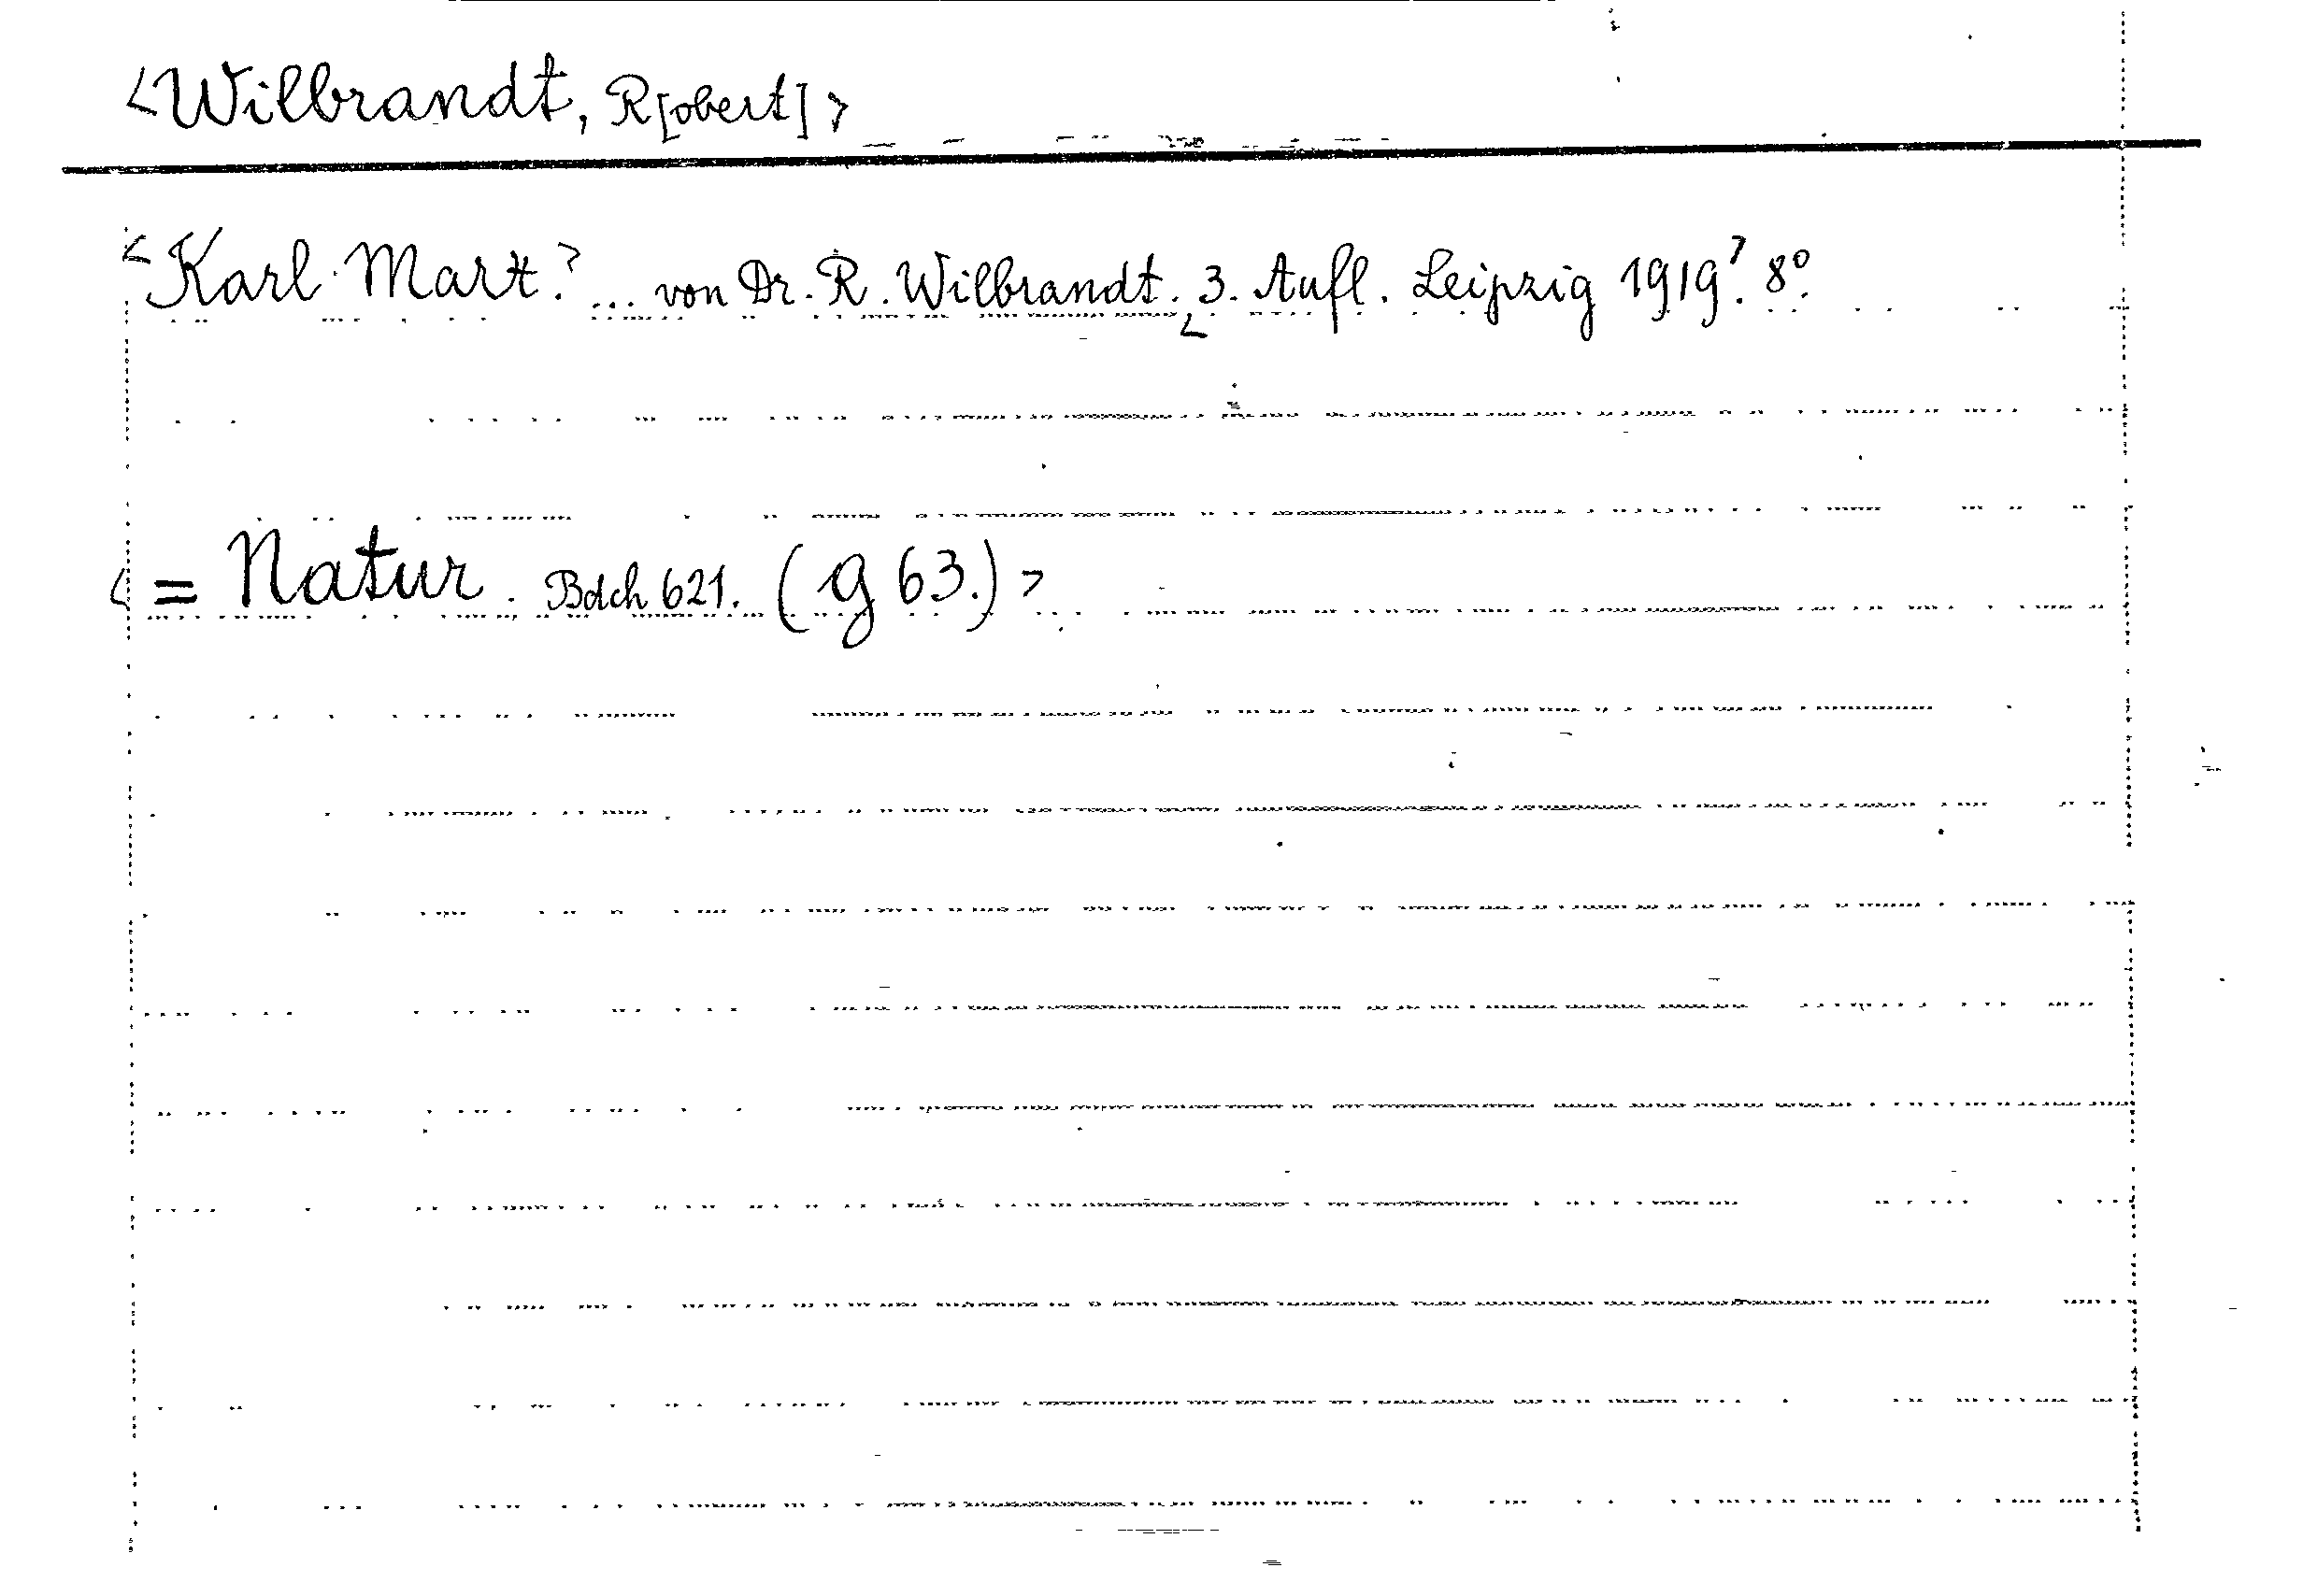 <Wilbrandt, R[obert]>
<Karl Marx.> ... von Dr. R. Wilbrandt. <3. Aufl. Leipzig 1919>. 8°.
<= Natur. Bdch 621. (g 63.)>